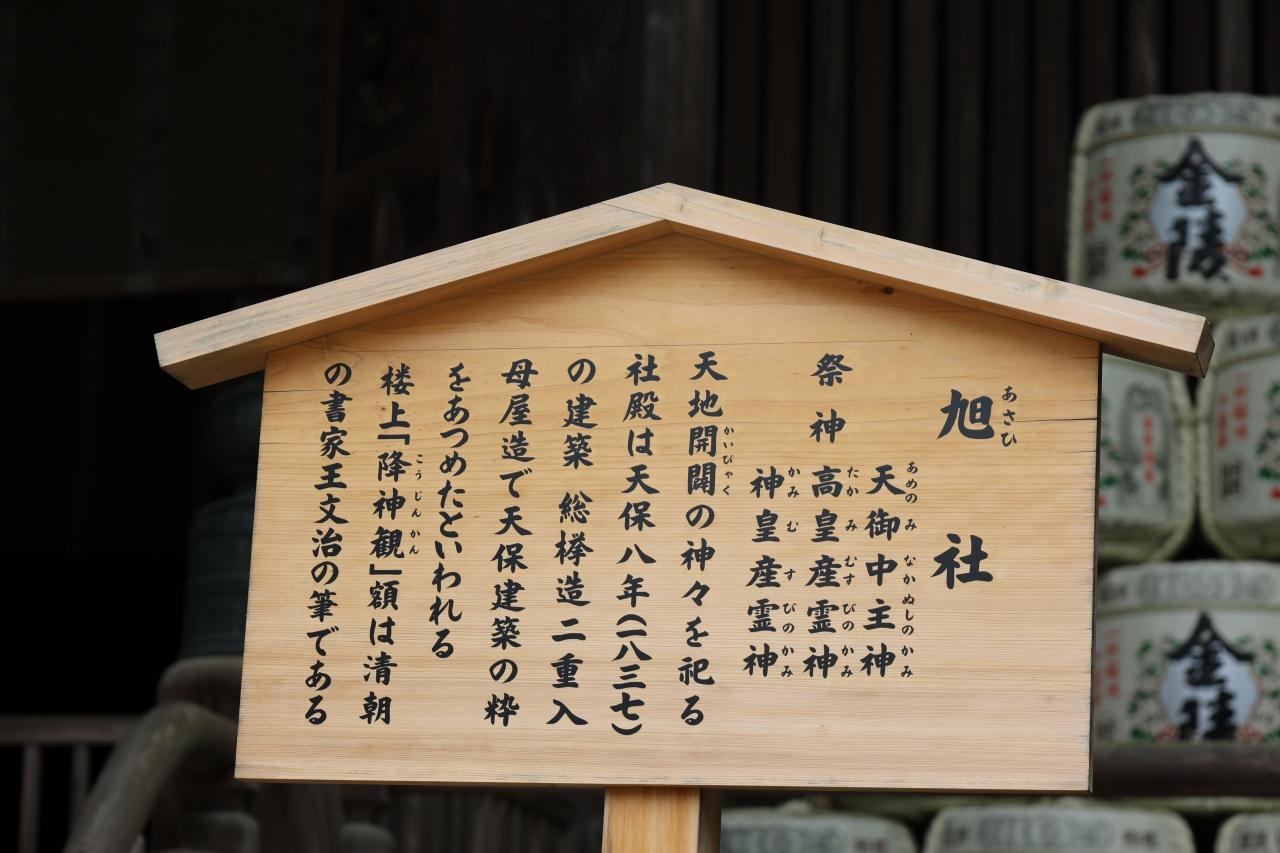 旭社
あさひ
祭神
天御中主神
あめのみなかぬしのかみ
高皇産霊神
たかみむすびのかみ
神皇産霊神
かみむすびのかみ
天地開闢の神々を祀る
かいびゃく
社殿は天保八年(一八三七)
の建築 総欅造二重入
母屋造で天保建築の粋
をあつめたといわれる
楼上「降神観」額は清朝
こうじんかん
の書家王文治の筆である
金陵
金陵